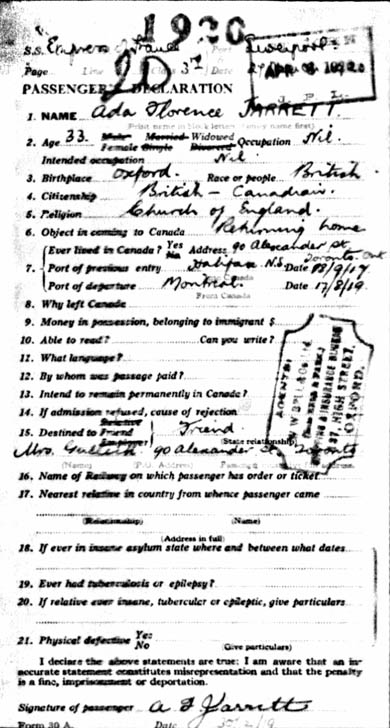 1920
S.S. Empress of France Port Liverpool
Page Line Class 3rd Date
APR 1920
PASSENGER'S DECLARATION
1. NAME Ada Florence JARRETT.
Print name in block letters (Family name first)
2. Age 33. Male Married Widowed Occupation Nil.
Female Single Divorced
Intended occupation Nil
3. Birthplace Oxford. Race or people British
4. Citizenship British - Canadian.
5. Religion Church of England.
6. Object in coming to Canada Returning home
7. Ever lived in Canada? Yes No Address 90 Alexander St. Toronto. Ont
Port of previous entry Halifax N.S. Date 18/9/17
To Canada
Port of departure Montreal Date 17/8/19
From Canada
8. Why left Canada
9. Money in possession, belonging to immigrant $
10. Able to read? Can you write?
11. What language?
12. By whom was passage paid?
13. Intend to remain permanently in Canada?
14. If admission refused, cause of rejection
15. Destined to Relative Friend Employer Friend
(State relationship)
Mrs. 90 Alexander St. Toronto
(Name) (P.O. Address)
16. Name of Railway on which passenger has order or ticket
17. Nearest relative in country from whence passenger came
(Relationship) (Name)
(Address in full)
18. If ever in insane asylum state where and between what dates
19. Ever had tuberculosis or epilepsy?
20. If relative ever insane, tubercular or epileptic, give particulars
21. Physical defective Yes No
(Give particulars)
I declare the above statements are true: I am aware that an in-
accurate statement constitutes misrepresentation and that the penalty
is a fine, imprisonment or deportation.
Signature of passenger A F Jarrett
Form 30 A. Date
AGENTS:
37, HIGH STREET,
OXFORD.